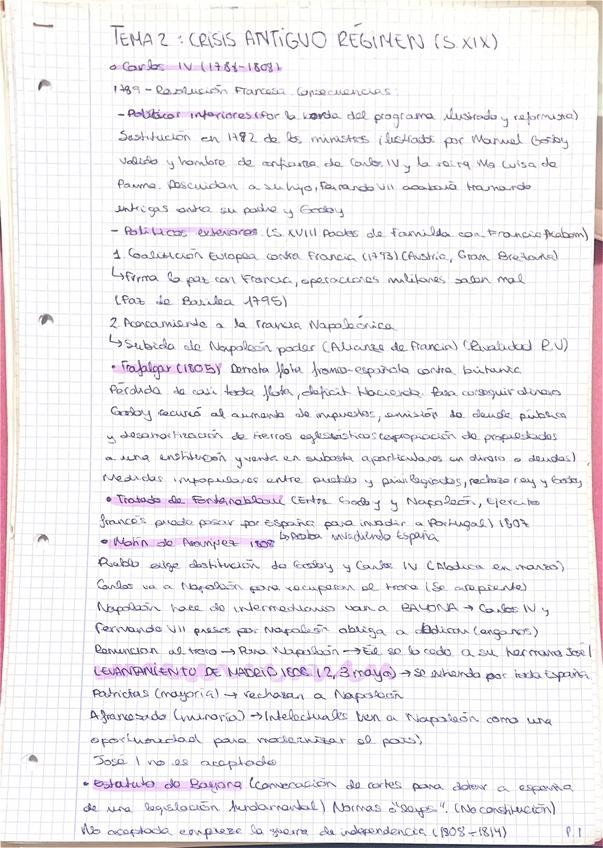 TEMA 2: CRISIS ANTIGUO RÉGIMEN (S. XIX)
• Carlos IV (1788-1808)
1789 - Revolución Francesa Consecuencias:
- Políticas interiores (Por la borda del programa ilustrado y reformista)
Sustitución en 1792 de los ministros ilustrados por Manuel Godoy
valido y hombre de confianza de Carlos IV y la reina Ma Luisa de
Parma. Descuidan a su hijo, Fernando VII acabará tramando
intrigas contra su padre y Godoy
- Políticas exteriores (S. XVIII Pactos de Familia con Francia)
1. Coalición Europea contra Francia (1793) (Austria, Gran Bretaña)
↳ Firma la paz con Francia, operaciones militares salen mal
(Paz de Basilea 1795)
2. Acercamiento a la Francia Napoleónica
↳ Subida de Napoleón poder (Alianza de Francia) (Rivalidad R.U)
• Trafalgar (1805) Derrota flota franco-española contra británica
Pérdida de casi toda flota, déficit Hacienda. Para conseguir dinero
Godoy recurrió al aumento de impuestos, emisión de deuda pública
y desamortización de tierras eglesiásticas (expropiación de propiedades
a una institución y venta en subasta a particulares en dinero o deudas)
Medidas impopulares entre pueblo y privilegiados, rechazo rey y Godoy
• Tratado de Fontainebleau (Entre Godoy y Napoleón, Ejército
francés puede pasar por españa para invadir a Portugal) 1807
↳ Acaba invadiendo España
• Motín de Aranjuez 1808
Pueblo exige destitución de Godoy y Carlos IV (Abdica en marzo)
Carlos va a Napoleón para recuperar el trono (Se arrepiente)
Napoleón hace de intermediario van a BAYONA → Carlos IV y
Fernando VII presos por Napoleón obliga a abdicar (engaños)
Renuncian al trono → Para Napoleón → Él se lo cede a su hermano José I
LEVANTAMIENTO DE MADRID 1808 (2, 3 mayo) → se extiende por toda España
Patriotas (mayoría) → rechazan a Napoleón
Afrancesado (minoría) → Intelectuales (ven a Napoleón como una
oportunidad para modernizar el país)
José I no es aceptado
• Estatuto de Bayona (Convocación de cortes para dotar a españa
de una legislación fundamental) Normas o "leyes". (No constitución)
No aceptada empieza la guerra de independencia (1808-1814)
P. 1